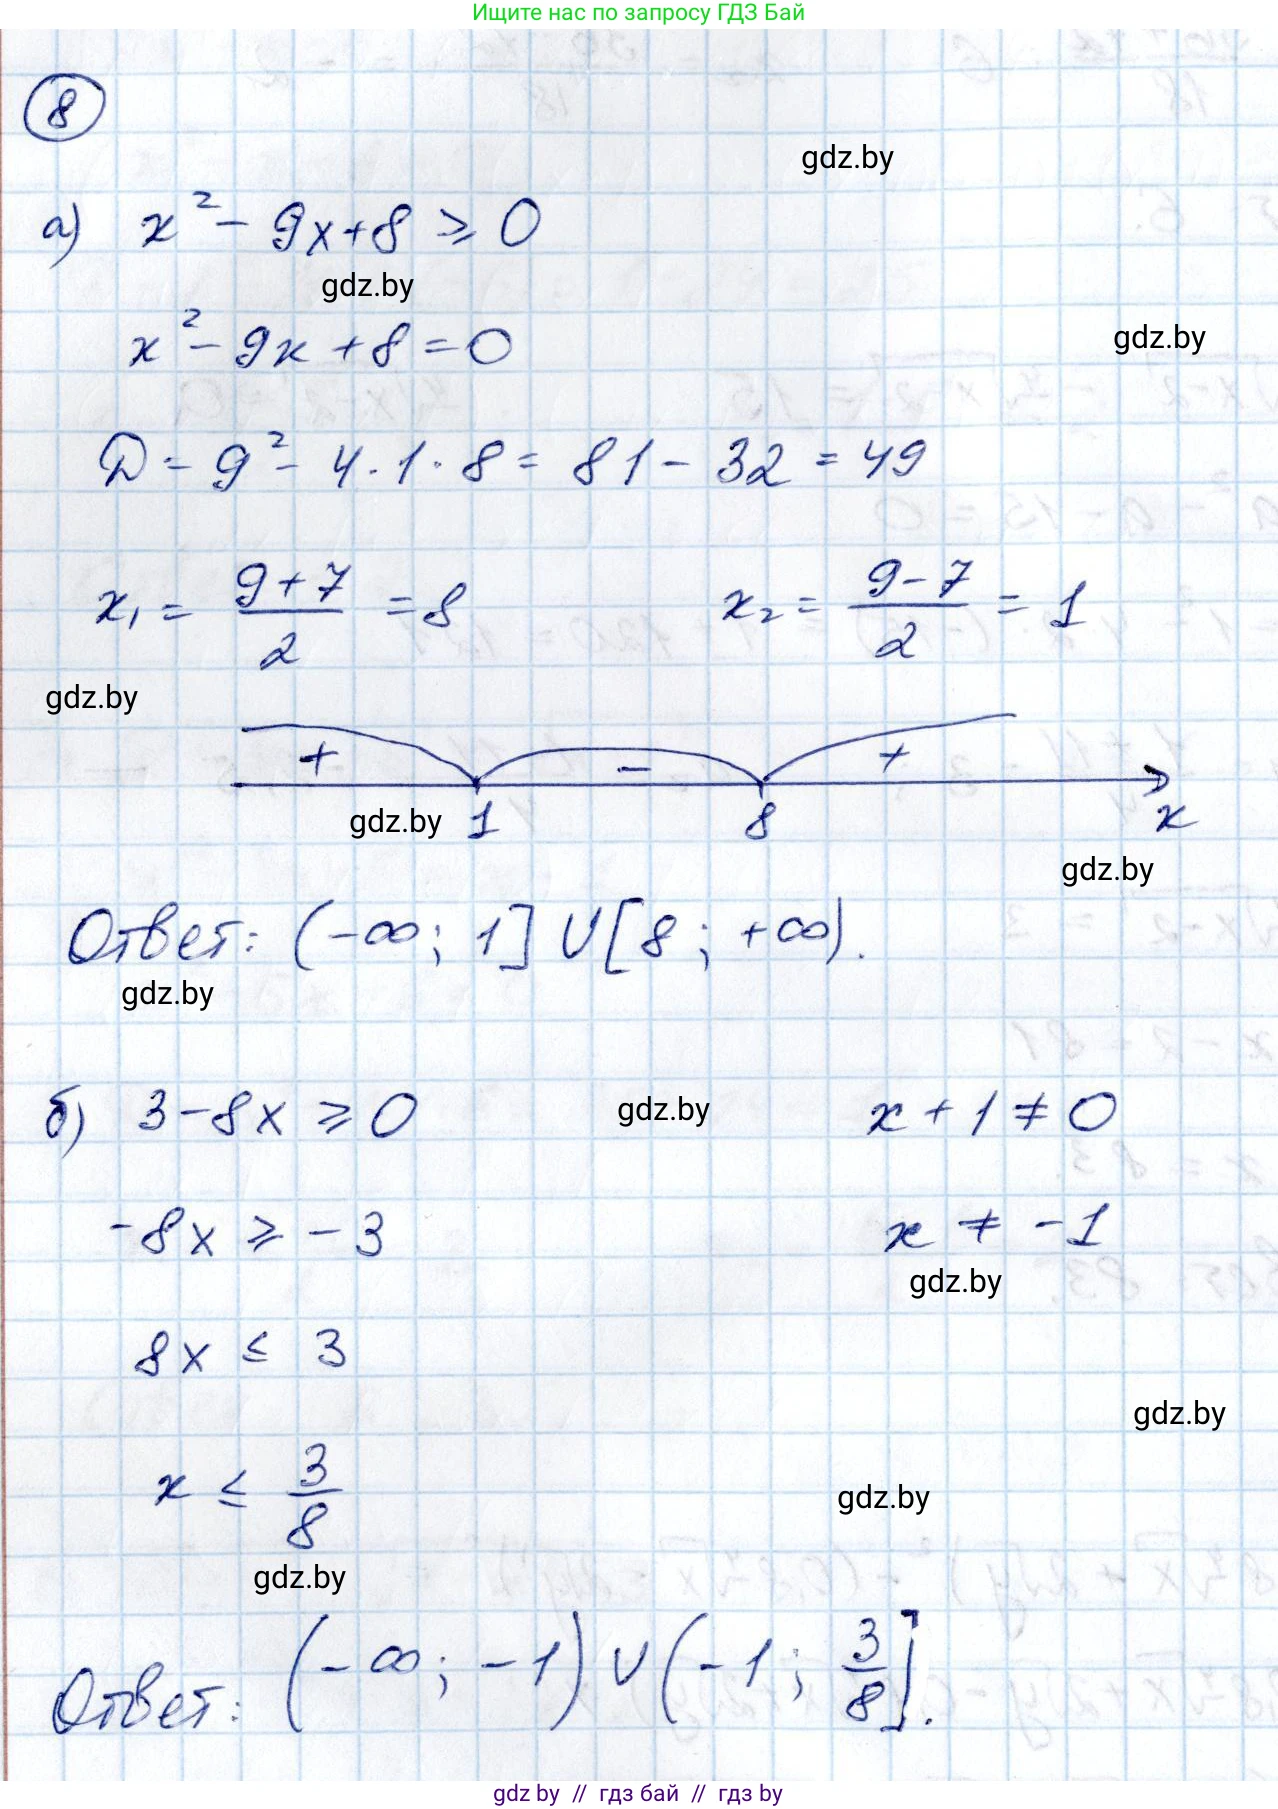 Ищите нас по запросу ГДЗ Бай
8
gdz.by
а) x² - 9x + 8 ⩾ 0
gdz.by
x² - 9x + 8 = 0
gdz.by
D = 9² - 4 · 1 · 8 = 81 - 32 = 49
x₁ = (9+7)/2 = 8 x₂ = (9-7)/2 = 1
gdz.by
+ - +
gdz.by 1 8 x
gdz.by
Ответ: (-∞; 1] ∪ [8; +∞).
gdz.by
б) 3 - 8x ⩾ 0 gdz.by x + 1 ≠ 0
-8x ⩾ -3 x ≠ -1
gdz.by
8x ≤ 3
gdz.by
x ≤ 3/8
gdz.by
gdz.by
Ответ: (-∞; -1) ∪ (-1; 3/8].
gdz by // гдз бай // гдз by